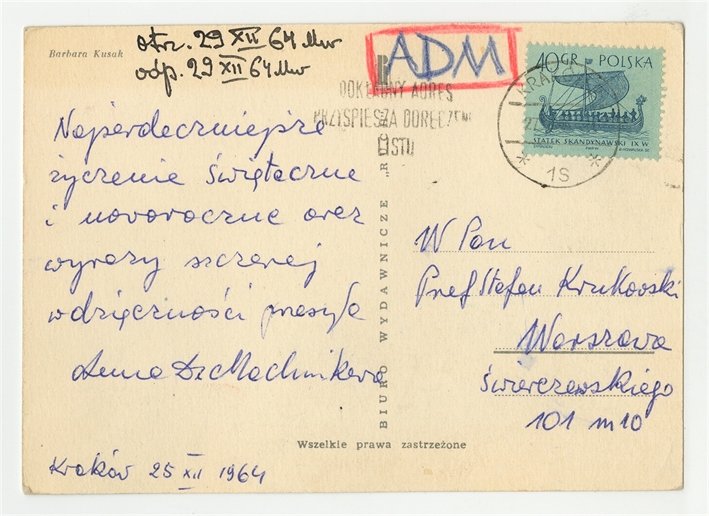 Barbara Kusak
otrz. 29 XII 64
odp. 29 XII 64
ADM
DOKŁADNY ADRES
PRZYSPIESZA DORĘCZENI
LISTU
40 GR POLSKA
STATEK SKANDYNAWSKI IX W.
KRAKÓ
Najserdeczniejsze
życzenia świąteczne
i noworoczne oraz
wyrazy szczerej
wdzięczności przesyła
Kraków 25 XII 1964
BIURO WYDAWNICZE „RUCH"
Wszelkie prawa zastrzeżone
W Pan
Prof Stefan Krukowski
Warszawa
Świerczewskiego
101 m 10